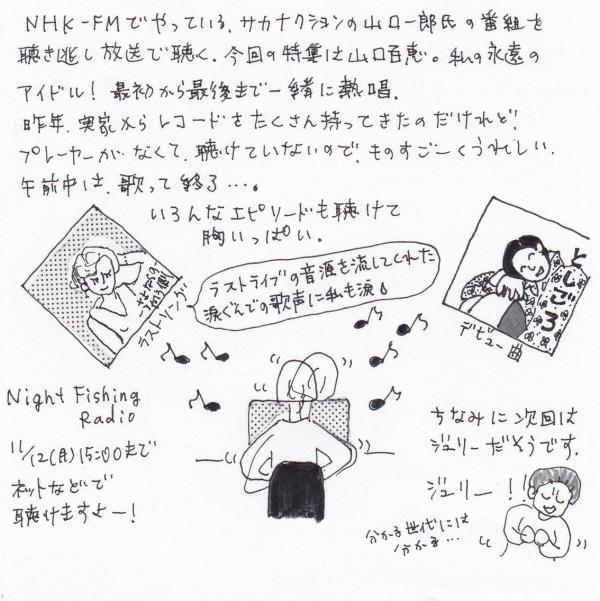 NHK-FMでやっている、サカナクションの山口一郎氏の番組を
聴き逃し放送で聴く。今回の特集は山口百恵。私の永遠の
アイドル！最初から最後まで一緒に熱唱。
昨年、実家からレコードをたくさん持ってきたのだけれど、
プレーヤーがなくて、聴けていないので、ものすごーくうれしい。
午前中は、歌って終了…。
いろんなエピソードも聴けて
胸いっぱい。
ラストソング
ラストライブの音源を流してくれた
涙ぐんでの歌声に私も涙。
としごろ
デビュー曲
Night Fishing
Radio
11/12(月)15:00まで
ネットなどで
聴けますよー！
ちなみに次回は
ジュリーだそうです。
ジュリー！！
分かる世代には
分かる…